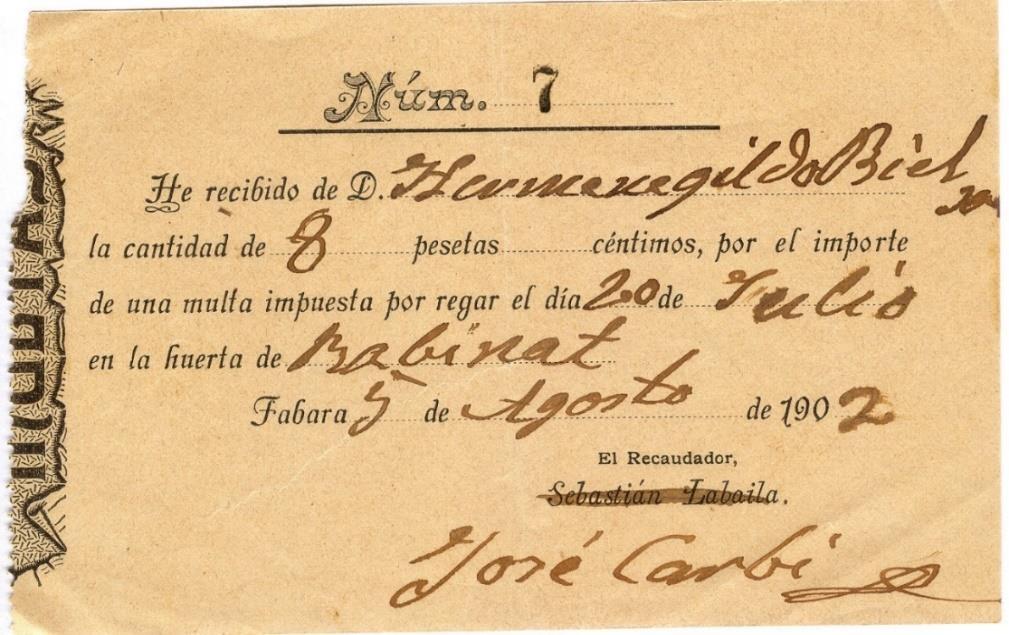 Núm. 7
He recibido de D. Hermenegildo Biel
la cantidad de 8 pesetas céntimos, por el importe
de una multa impuesta por regar el día 20 de Julio
en la huerta de Babinat
Fabara 5 de Agosto de 1902
El Recaudador,
Sebastián Labaila.
José Carbi